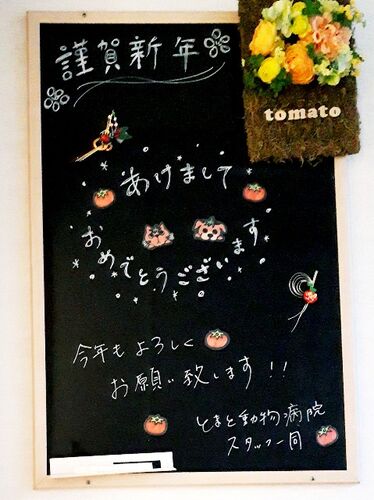 謹賀新年
tomato
あけまして
おめでとうございます
今年もよろしく
お願い致します!!
とまと動物病院
スタッフ一同